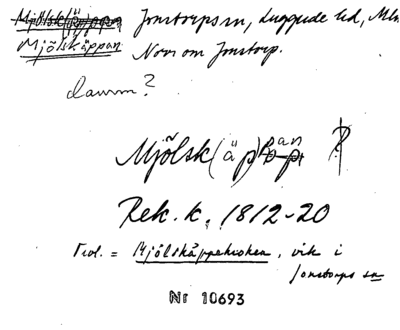 Mjölsk(äp)pan Jonstorps sn, Luggude hd, Mlm
Mjölskäppan Norr om Jonstorp.
damm?
Mjölsk(äp)pan
Rek. k. 1812-20
Trol. = Mjölskäppekroken, vik i
Jonstorps sn
Nr 10693